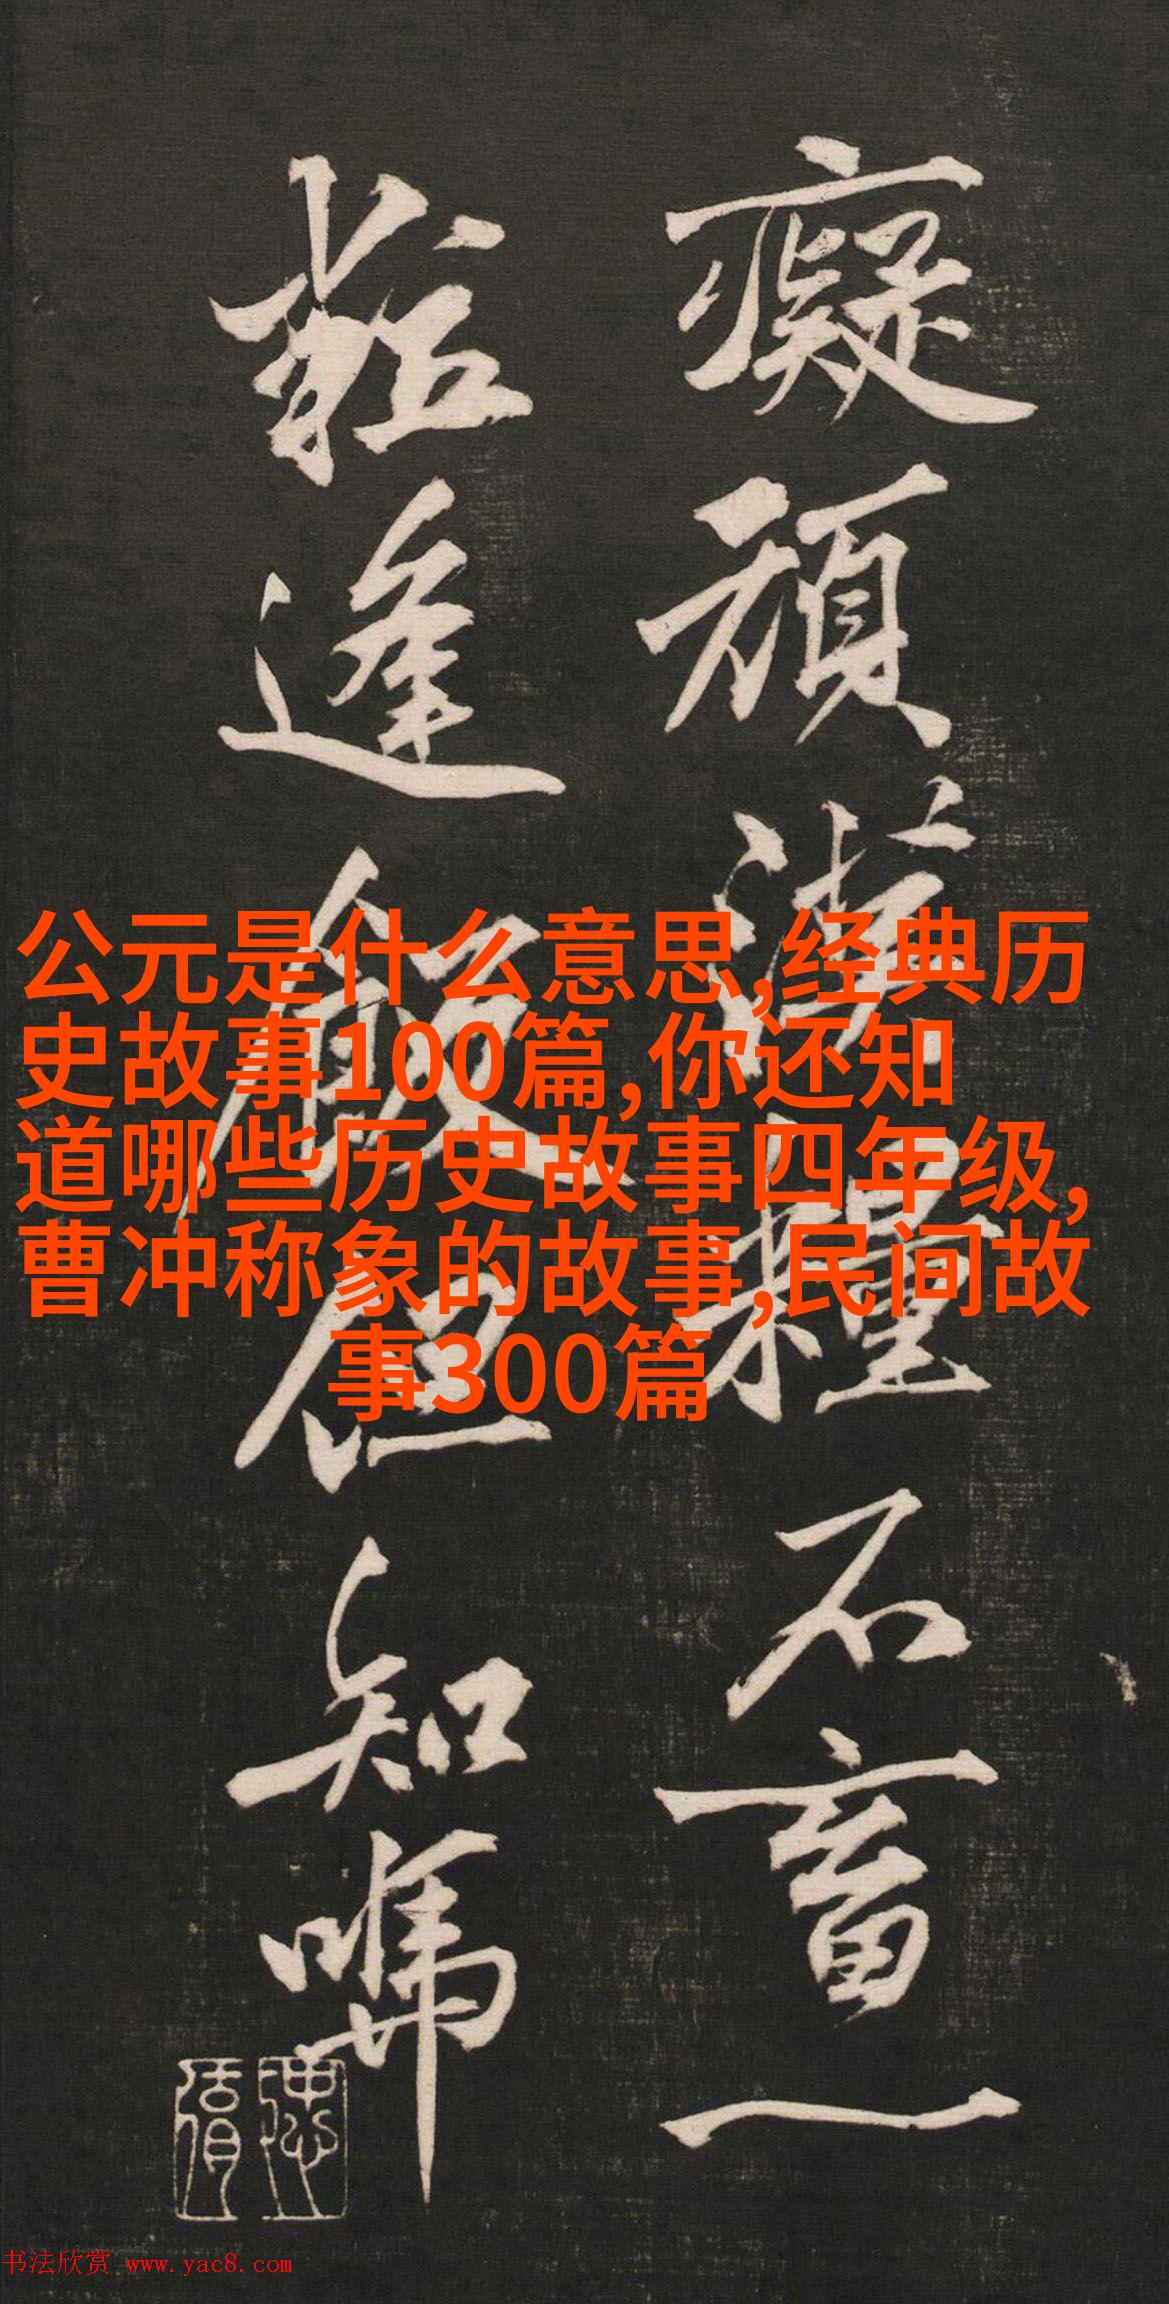 癡頑糧不畜一
粒逢飯但知
公元是什么意思,经典历
史故事100篇,你还知
道哪些历史故事四年级,
曹冲称象的故事,民间故
事300篇
书法欣赏 www.yac8.com